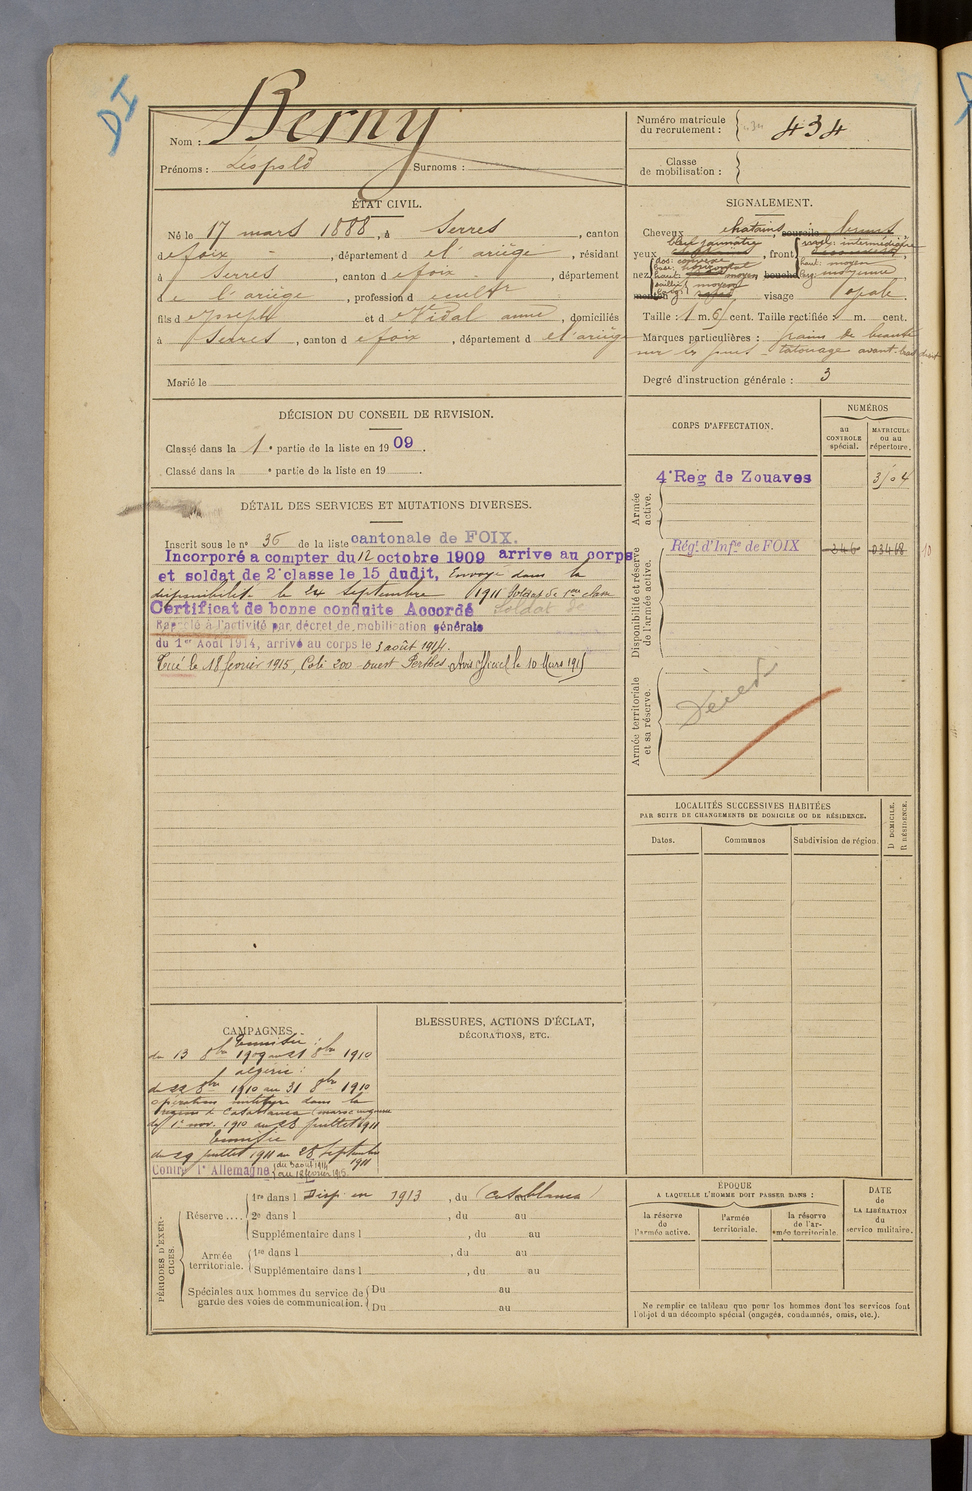 DI
Nom : Berny
Prénoms : Léopold Surnoms :
Numéro matricule
du recrutement : 434
Classe
de mobilisation :
ÉTAT CIVIL.
Né le 17 mars 1888, à Serres, canton
de foix, département d e l'ariège, résidant
à Serres, canton d e foix, département
de l'ariège, profession d e cultr
fils d e Joseph et d e Vidal anne, domiciliés
à Serres, canton d e foix, département d e l'ariège
Marié le
SIGNALEMENT.
Cheveux chatains, sourcils bruns
yeux bleu jaunâtre, front incl: intermédiaire
haut: moyen
larg: moyenne
nez dos: convexe
base: horizontal
haut: moyen bouche
saillie moyen
larg
menton visage opale.
Taille : 1 m. 61 cent. Taille rectifiée : 1 m. cent.
Marques particulières : grains de beauté
sur les joues - tatouage avant-bras droit
Degré d'instruction générale : 3
DÉCISION DU CONSEIL DE REVISION.
Classé dans la 1e partie de la liste en 1909.
Classé dans la e partie de la liste en 19 .
CORPS D'AFFECTATION.
NUMÉROS
au
CONTROLE
spécial.
MATRICULE
ou au
répertoire.
Armée
active.
4e Reg de Zouaves
Disponibilité et réserve
de l'armée active.
Régt d'Infie de FOIX 346 03468 10
Armée territoriale
et sa réserve.
Décédé
DÉTAIL DES SERVICES ET MUTATIONS DIVERSES.
Inscrit sous le no 36 de la liste cantonale de FOIX.
Incorporé a compter du 12 octobre 1909 arrive au corps
et soldat de 2e classe le 15 dudit, Envoyé dans la
disponibilité le 24 septembre 1911 Soldat de 1re classe
Certificat de bonne conduite Accordé Soldat de
Rappelé à l'activité par décret de mobilisation générale
du 1er Août 1914, arrivé au corps le 3 août 1914.
Tué le 18 février 1915, Cote 200 - ouest Perthes Avis officiel le 10 Mars 1915
LOCALITÉS SUCCESSIVES HABITÉES
PAR SUITE DE CHANGEMENTS DE DOMICILE OU DE RÉSIDENCE.
Dates. Communes Subdivision de région.
D DOMICILE.
R RÉSIDENCE.
CAMPAGNES.
Tunisie :
du 13 8bre 1909 au 21 8bre 1910
algérie :
du 22 8bre 1910 au 31 8bre 1910
opérations militaires dans la
région de Casablanca (maroc
du 1er nov. 1910 au 28 juillet 1911
Tunisie
du 29 juillet 1911 au 28 septembre
1911
Contre l'Allemagne du 3 août 1914
au 18 février 1915.
BLESSURES, ACTIONS D'ÉCLAT,
DÉCORATIONS, ETC.
PÉRIODES D'EXER-
CICES.
Réserve ....
1re dans l Disp. en 1913, du (Casablanca)
2e dans l , du au
Supplémentaire dans l , du au
Armée
territoriale.
1re dans l , du au
Supplémentaire dans l , du au
Spéciales aux hommes du service de
garde des voies de communication.
Du au
Du au
ÉPOQUE
A LAQUELLE L'HOMME DOIT PASSER DANS :
la réserve
de
l'armée active.
l'armée
territoriale.
la réserve
de l'ar-
mée territoriale.
DATE
de
LA LIBÉRATION
du
service militaire.
Ne remplir ce tableau que pour les hommes dont les services font
l'objet d'un décompte spécial (engagés, condamnés, omis, etc.).